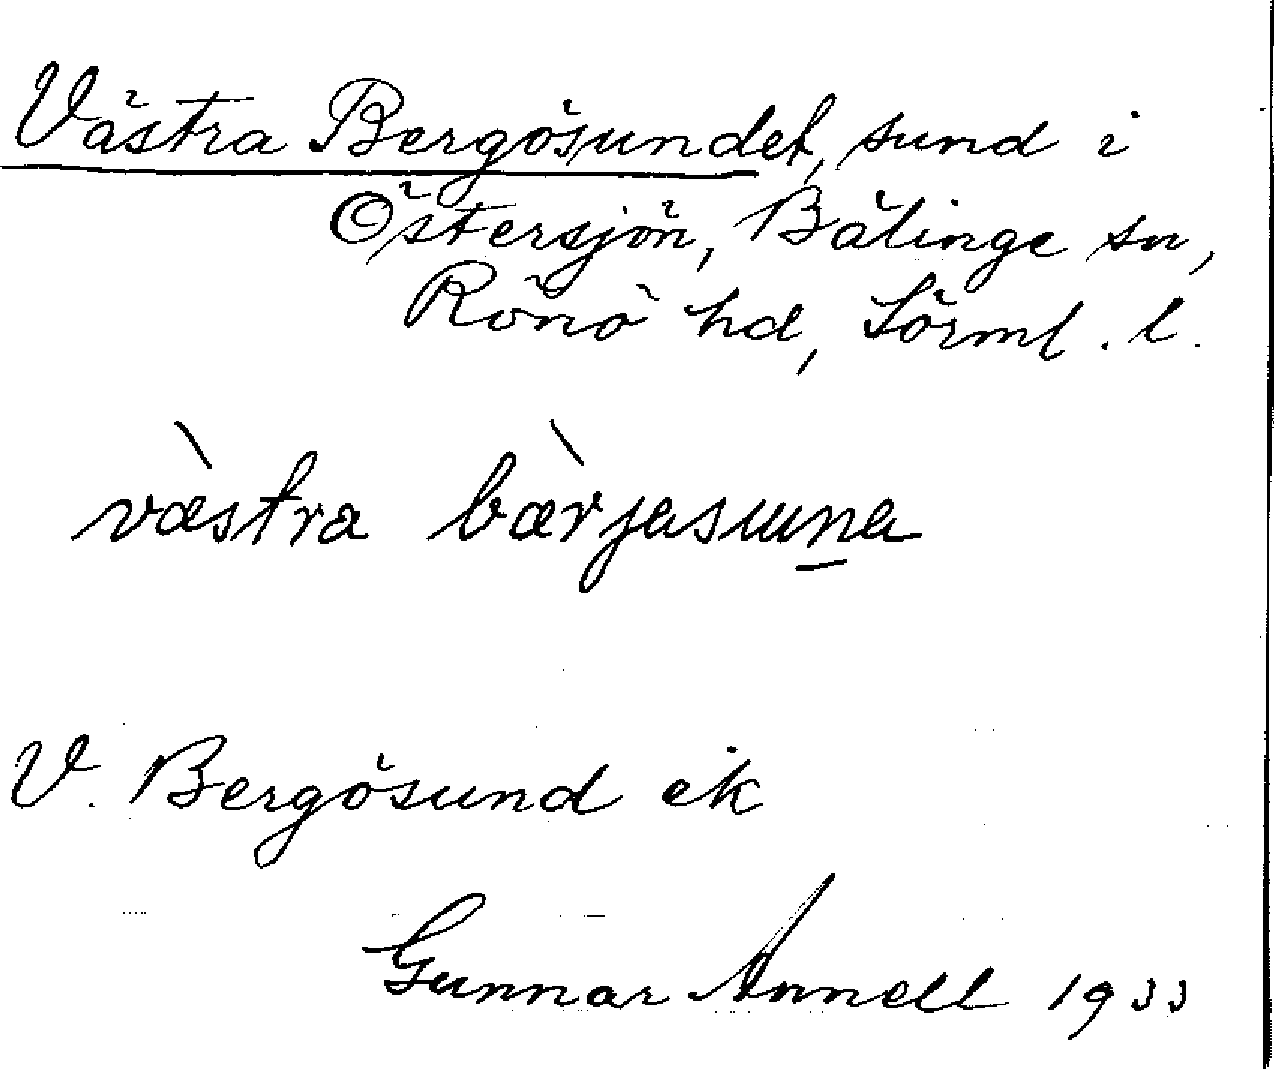 Västra Bergösundet, sund i
Östersjön, Bälinge sn,
Rönö hd, Sörml. l.
væ̀stra bæ̀rjasuṉa
V. Bergösund ek
Gunnar Annell 1933